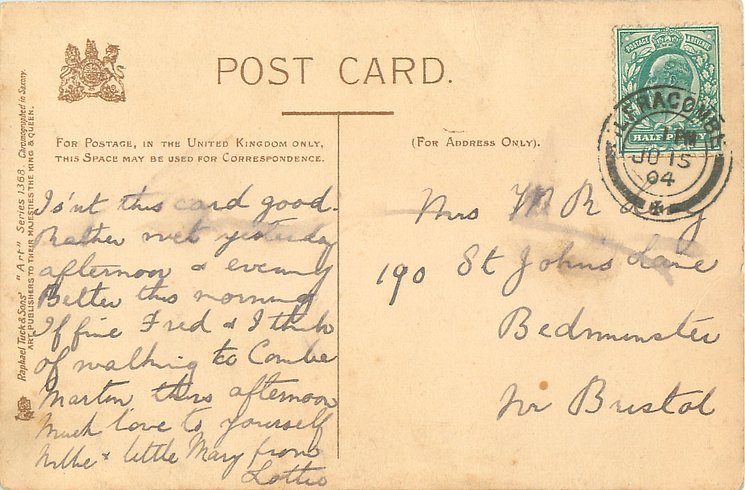 POST CARD.
FOR POSTAGE, IN THE UNITED KINGDOM ONLY,
THIS SPACE MAY BE USED FOR CORRESPONDENCE.
(FOR ADDRESS ONLY).
Raphael Tuck & Sons' "Art" Series 1368. Chromographed in Saxony.
ART PUBLISHERS TO THEIR MAJESTIES THE KING & QUEEN.
POSTAGE REVENUE
HALF PENNY
ILFRACOMBE
JU 15
04
Is'nt this card good.
Rather wet yesterday
afternoon & evening
Better this morning
If fine Fred & I think
of walking to Combe
Martin this afternoon
Much love to yourself
& little Mary from
Lottie
Mrs
190 St John's Lane
Bedminster
Nr Bristol